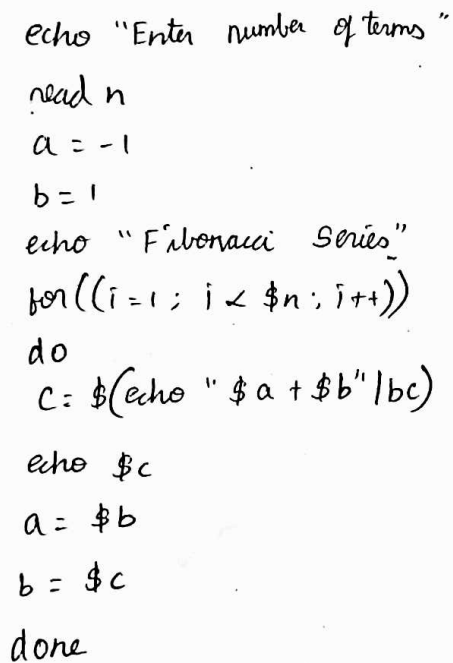 echo "Enter number of terms"
read n
a = -1
b = 1
echo "Fibonacci Series"
for((i=1; i < $n; i++))
do
c = $(echo "$a + $b" | bc)
echo $c
a = $b
b = $c
done